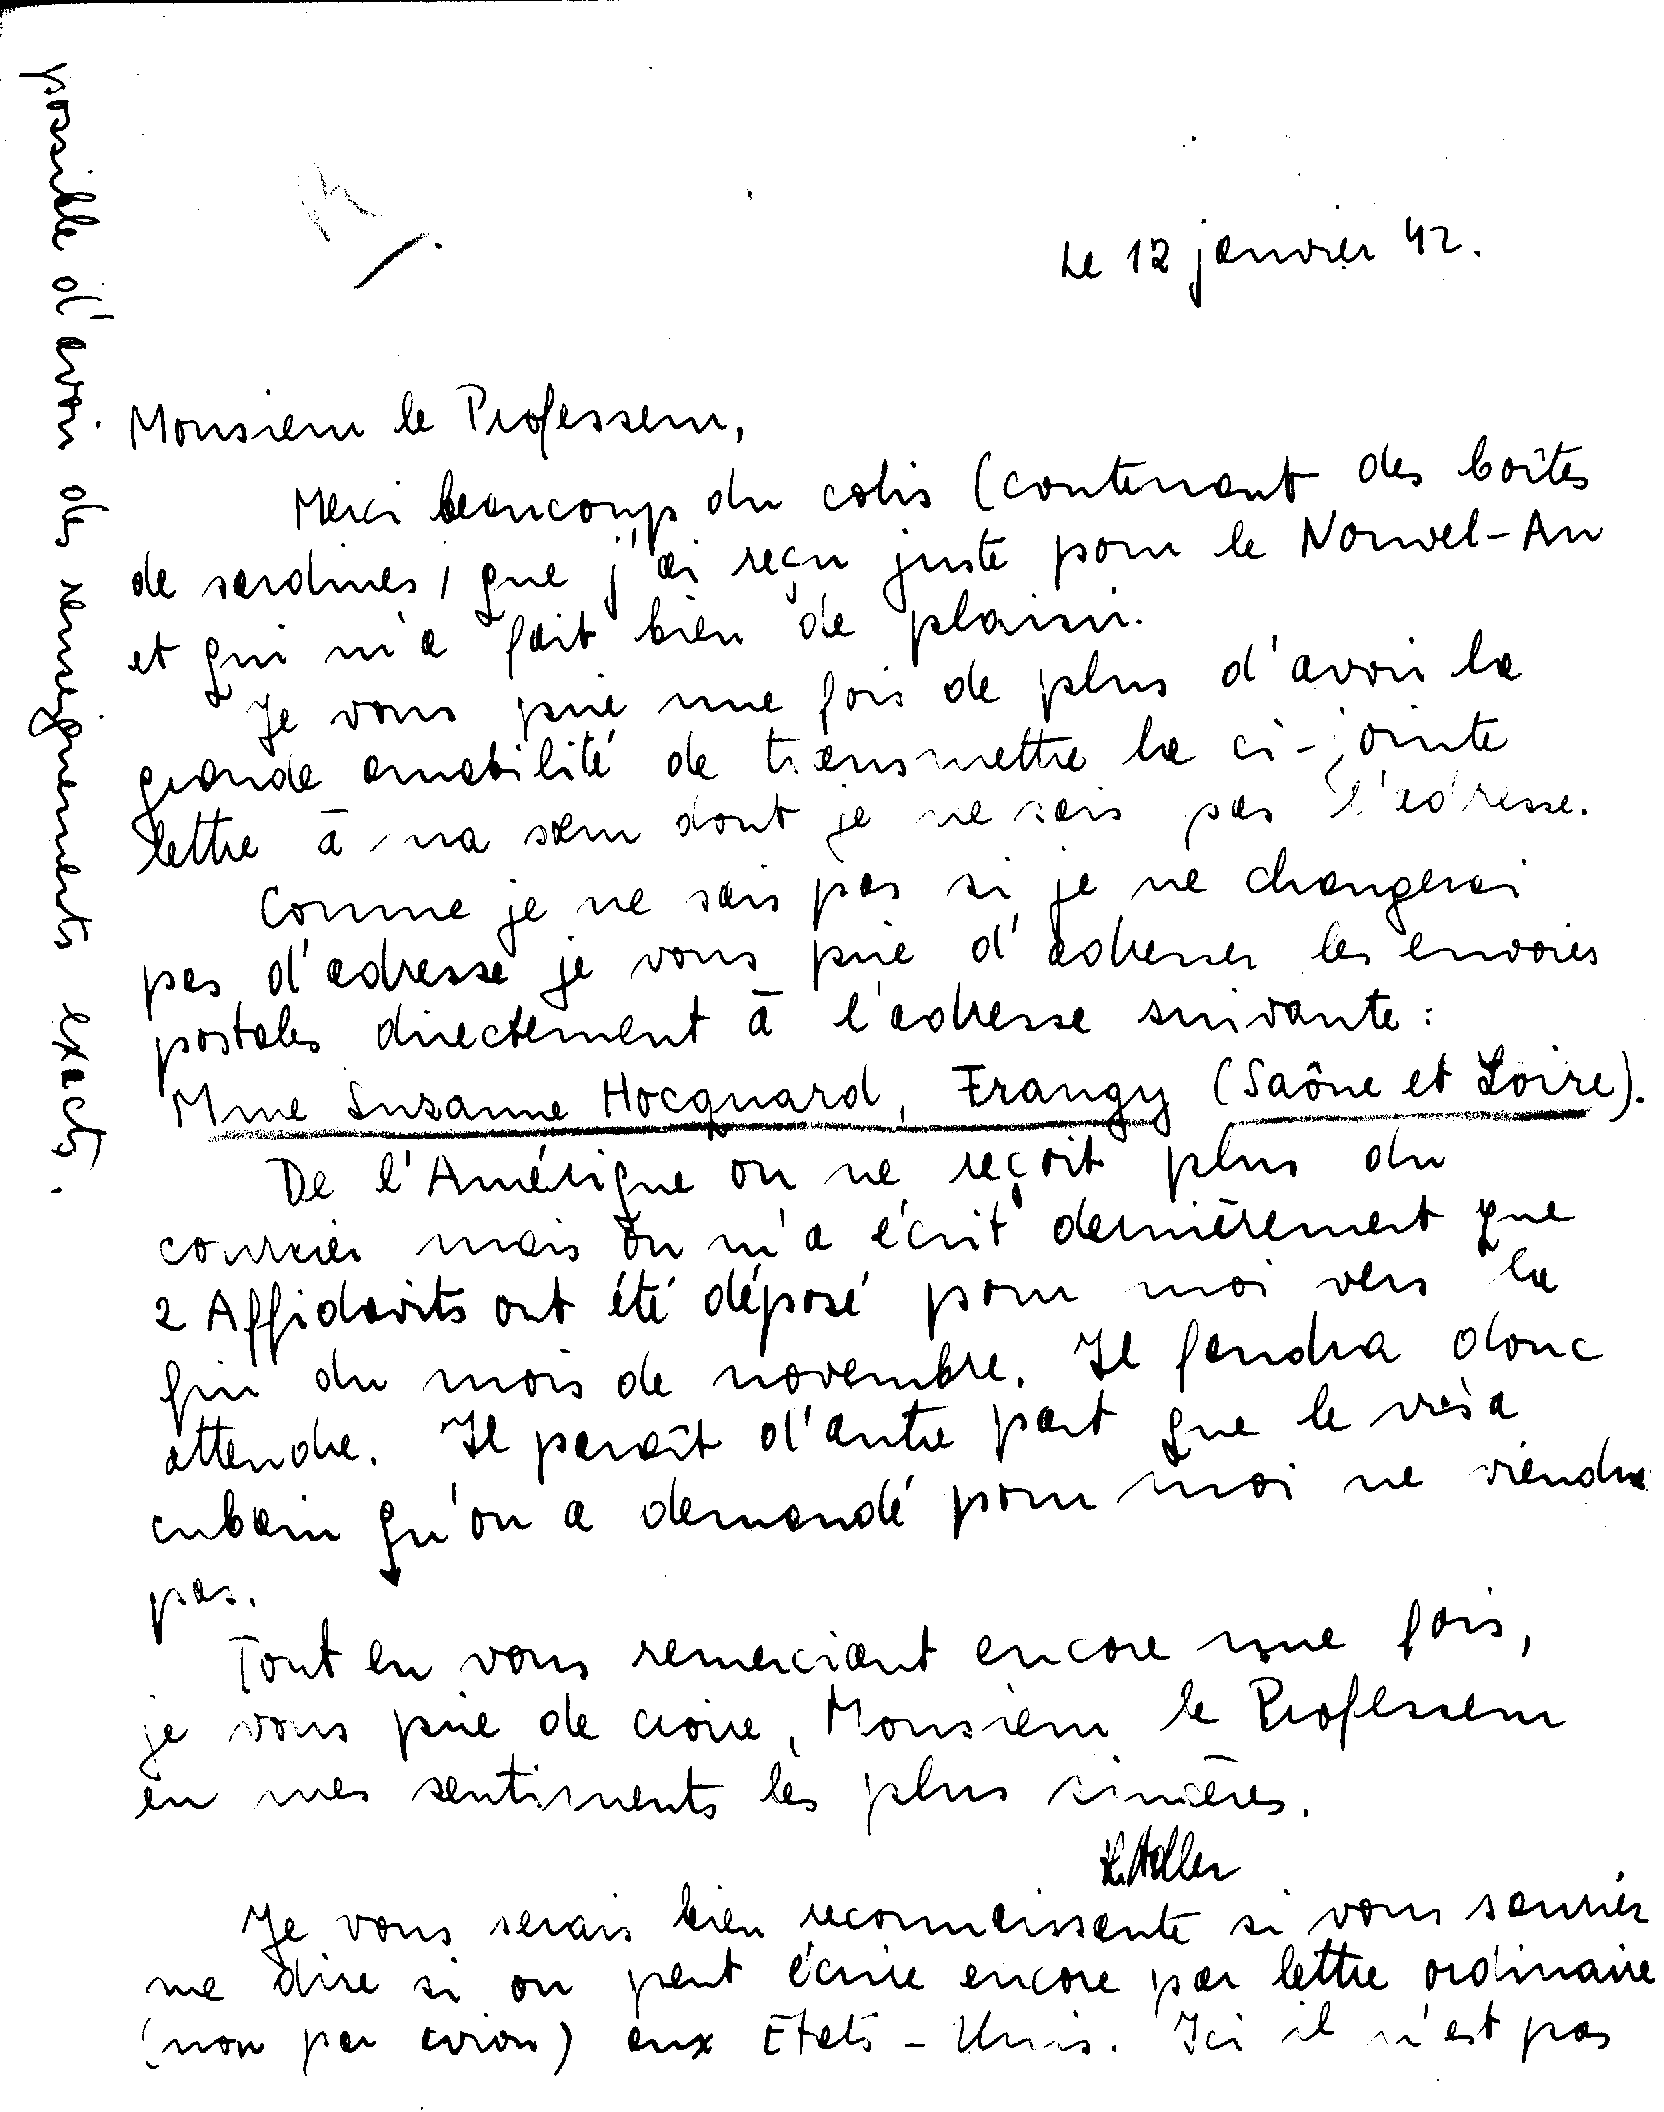 Le 12 janvier 42.
Monsieur le Professeur,
Merci beaucoup du colis (contenant des boîtes
de sardines) que j'ai reçu juste pour le Nouvel-An
et qui m'a fait bien de plaisir.
Je vous prie une fois de plus d'avoir la
grande amabilité de transmettre la ci-jointe
lettre à ma sœur dont je ne sais pas l'adresse.
Comme je ne sais pas si je ne changerai
pas d'adresse je vous prie d'adresser les envoies
postales directement à l'adresse suivante:
Mme Suzanne Hocquard, Frangy (Saône et Loire).
De l'Amérique on ne reçoit plus du
courrier mais on m'a écrit dernièrement que
2 Affidavits ont été déposé pour moi vers la
fin du mois de novembre. Il faudra donc
attendre. Il paraît d'autre part que le visa
cubain qu'on a demandé pour moi ne viendra
pas.
Tout en vous remerciant encore une fois,
je vous prie de croire, Monsieur le Professeur
en mes sentiments les plus sincères.
L. Adler
Je vous serais bien reconnaissante si vous sauriez
me dire si on peut écrire encore par lettre ordinaire
(non par avion) aux Etats-Unis. Ici il n'est pas
possible d'avoir des renseignements exacts.